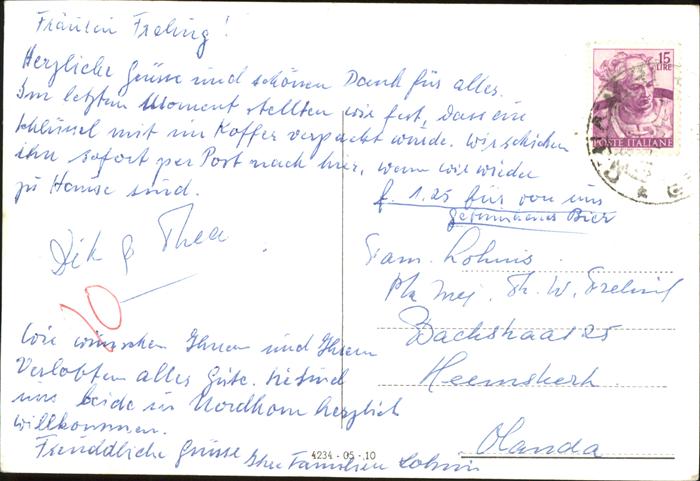 Fräulein Freling!
Herzliche Grüsse und schönen Dank für alles.
Im letzten Moment stellten wir fest, dass ein
Schlüssel mit im Koffer verpackt wurde. Wir schicken
ihn sofort per Post nach hier, wenn wir wieder
zu Hause sind.
f. 1.25 für von uns
getrunkenes Bier
Dik & Thea
10
Wir wünschen Ihnen und Ihrem
Verlobten alles Gute. Sie sind
uns beide in Nordhorn herzlich
willkommen.
Freuddliche Grüsse
Ihre Familien Lohuis
15
LIRE
POSTE ITALIANE
Fam. Lohuis
p/a Mej. Th. W. Freling
Bachstraat 25
Heemskerk
Olanda
4234 - 05 - 10